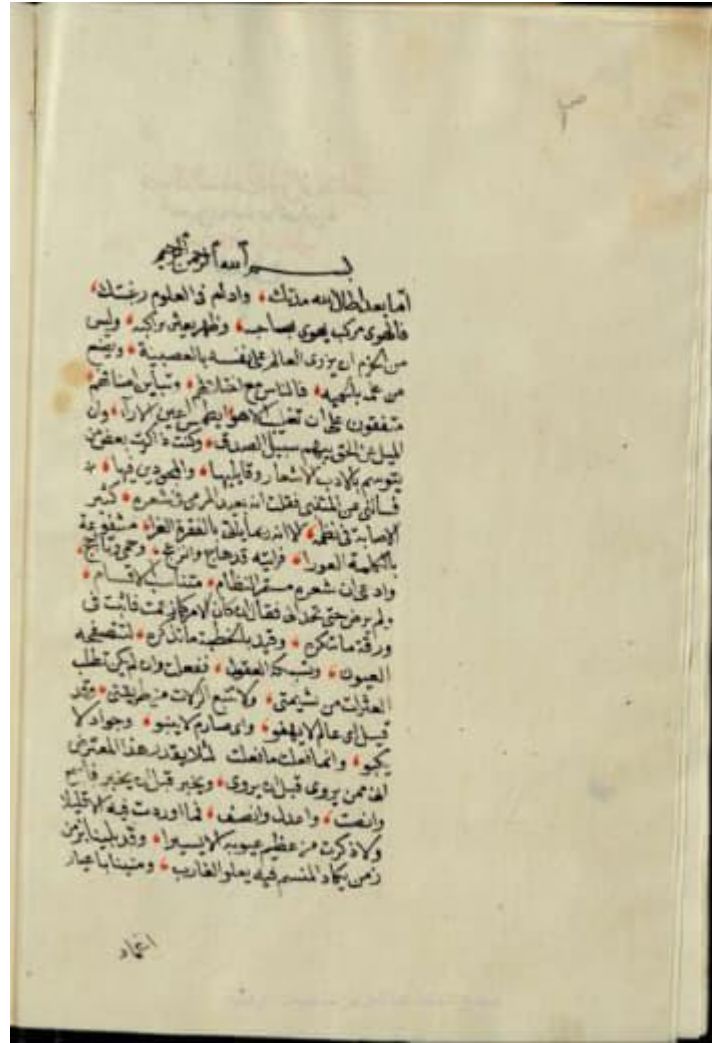 بسم الله الرحمن الرحيم
اما بعد اطال الله مدتك وادام في العلوم رغبتك
فالهوى مركب يهوى بصاحبه وظهر يعثر براكبه وليس
من الحزم ان يزرى العالم على نفسه بالعصبية ويضع
من علمه بالحمية فالناس مع اختلافهم وتباين اصنافهم
متفقون على ان تغليب الاهواء يطمس اعين الاراء وان
الميل عن الحق يبهم سبيل الصدق وكنت ذاكرت بعض من
يتوسم بالادب الاشعار وقايليها والمجودين فيها
فسألني عن المتنبي فقلت انه بعيد المرمى في شعره كثير
الاصابة في نظمه الا انه ربما يأتي بالفقرة الغراء مشفوعة
بالكلمة العورا فرأيته قد هاج وانزعج وحمى وتأجج
وادعى ان شعره مستمر النظام متناسب الاقسام
ولم يرض حتى تحداني فقال ان كان الامر كما زعمت فاثبت في
ورقة ما تنكره وقيد بالخطبة ما تذكره لتتصفحه
العيون وتسبكه العقول ففعلت وان لم يكن تطلب
العثرات من شيمتي ولا تتبع الزلات من طريقتي وقد
قيل اي عالم لا يهفو واي صارم لا ينبو وجواد لا
يكبو وانما فعلت ما فعلت لئلا يقدر هذا المعترض
اني ممن يروى قبل ان يروى ويخبر قبل ان يخبر فاسمع
وانصت واعدل وانصف فما اوردت فيه الا قليلا
ولا ذكرت من عظيم عيوبه الا يسيرا وقد بلينا بزمن
زمن يكاد المنسم فيه يعلو الغارب ومنينا باعيار
اغمار